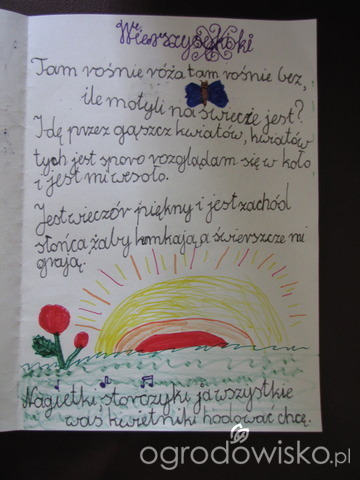 Wierszyki
Tam rośnie róża tam rośnie bez,
ile motyli na świecie jest?
Idę przez gąszcz kwiatów, kwiatów
tych jest sporo rozglądam się w koło
i jest mi wesoło.
Jest wieczór piękny i jest zachód
słońca, żaby kumkają, a świerszcze mi
grają.
Nagietki, storczyki ja wszystkie
was kwietniki hodować chcę.
ogrodowisko.pl